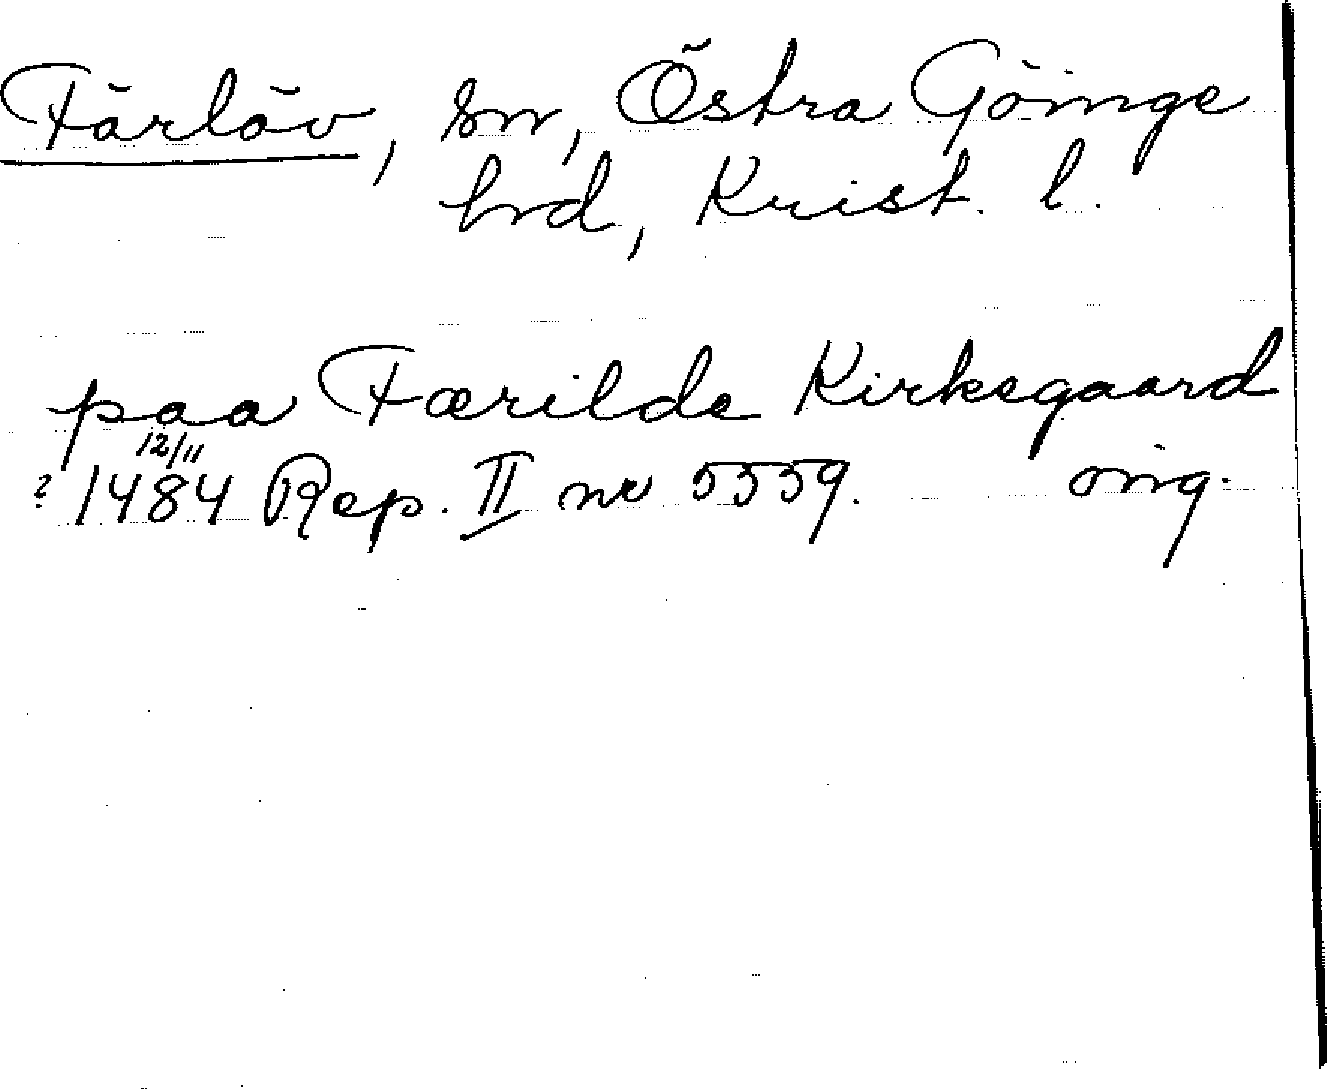 Färlöv, sn, Östra Göinge
hrd, Krist. l.
paa Færilde Kirkegaard
12/11
? 1484 Rep. II nr 5559. orig.